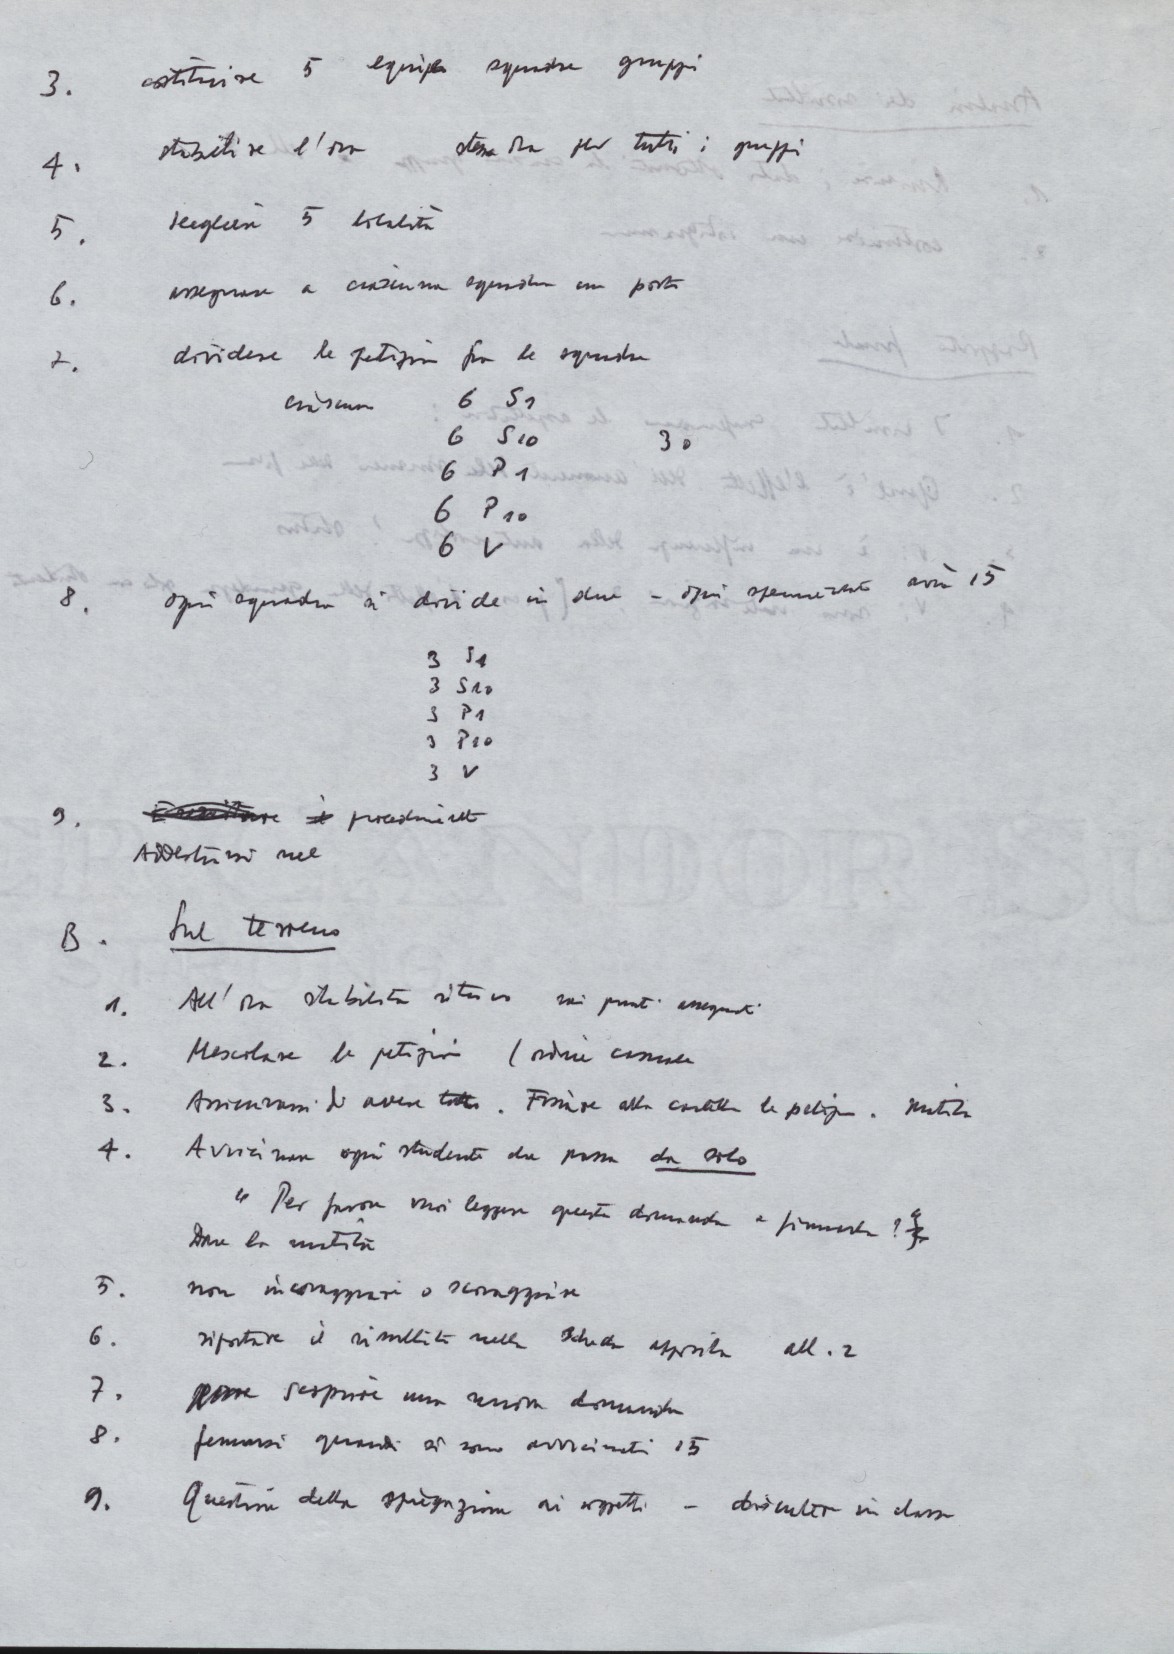 3. costituire 5 equipe squadre gruppi
4. stabilire l'ora stessa ora per tutti i gruppi
5. scegliere 5 località
6. assegnare a ciascuna squadra un posto
7. dividere le petizioni fra le squadre
ciascuna 6 S1
6 S10 30
6 P1
6 P10
6 V
8. ogni squadra si divide in due – ogni sperimentat avrà 15
3 S1
3 S10
3 P1
3 P10
3 V
9. procedimento
Addestrarsi nel
B. Sul terreno
1. All'ora stabilita ritrovo nei punti assegnati
2. Mescolare le petizioni (ordine casuale
3. Assicurarsi di avere tutto. Fissare alla cartella le petizioni. matita
4. Avvicinare ogni studente che passa da solo
" Per favore vuoi leggere questa domanda e firmarla?"
Dare la matita
5. non incoraggiare o scoraggiare
6. riportare il risultato nella scheda apposita all. 2
7. scoprire una nuova domanda
8. fermarsi quando si sono avvicinati 15
9. Questione della spiegazione ai soggetti – discutere in classe